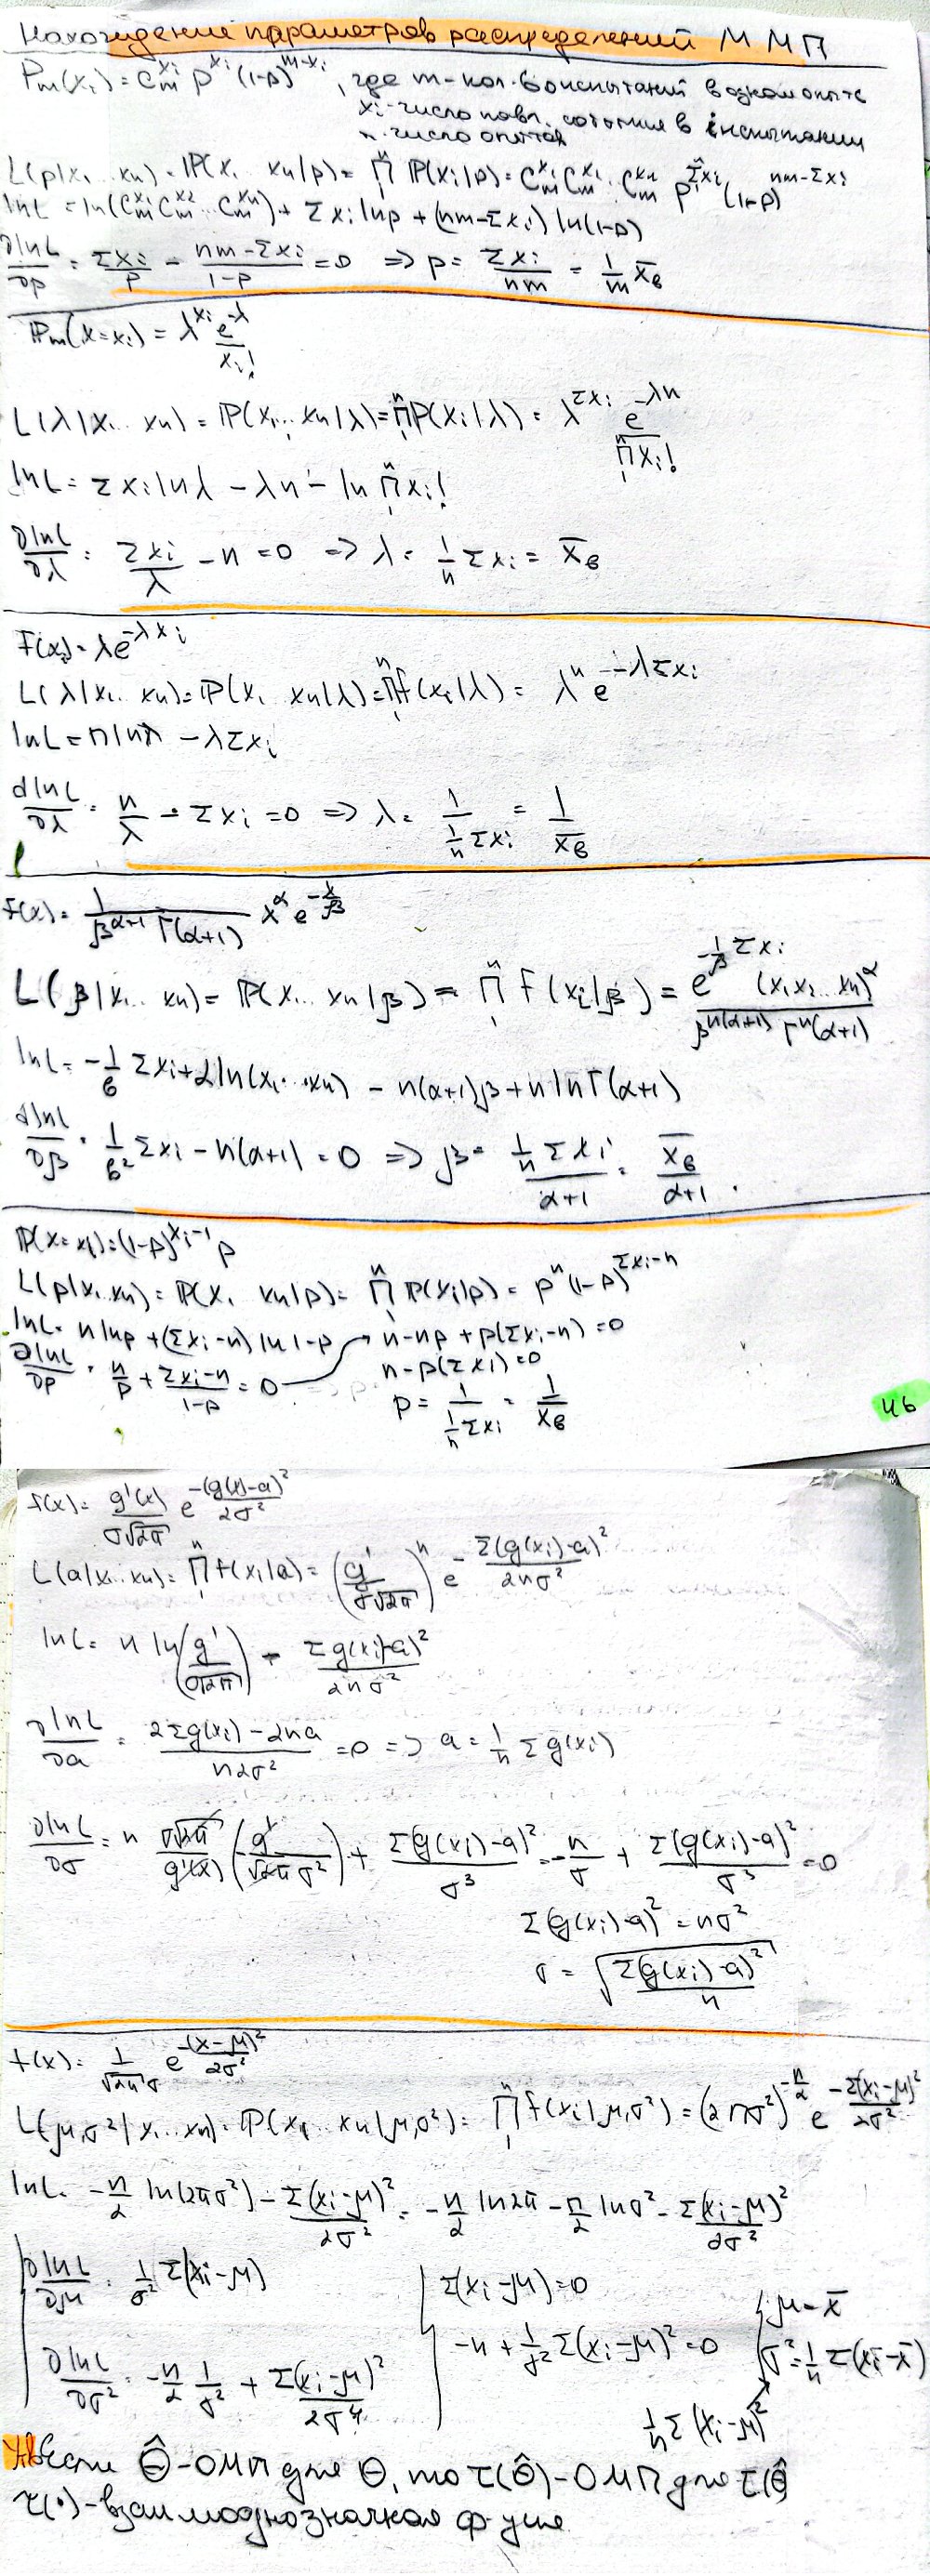 Нахождение параметров распределений ММП
Pm(xi) = C_m^{xi} p^{xi} (1-p)^{m-xi}, где m - кол-во испытаний в одном опыте
xi - число появ. события в i испытании
n - число опытов
L(p|x1...xn) = P(x1...xn|p) = ∏_1^n P(xi|p) = C_m^{x1} C_m^{x1}...C_m^{xn} p^{Σxi} (1-p)^{nm-Σxi}
lnL = ln(C_m^{x1} C_m^{x2}...C_m^{xn}) + Σxi lnp + (nm-Σxi) ln(1-p)
∂lnL/∂p = Σxi/p - (nm-Σxi)/(1-p) = 0 => p = Σxi/nm = 1/m x̄в
Pm(x=xi) = λ^{xi} e^{-λ}/xi!
L(λ|x1...xn) = P(x1...xn|λ) = ∏_1^n P(xi|λ) = λ^{Σxi} e^{-λn}/∏_1^n xi!
lnL = Σxi lnλ - λn - ln ∏_1^n xi!
∂lnL/∂λ = Σxi/λ - n = 0 => λ = 1/n Σxi = x̄в
f(xi) = λe^{-λxi}
L(λ|x1...xn) = P(x1...xn|λ) = ∏_1^n f(xi|λ) = λ^n e^{-λΣxi}
lnL = nlnλ - λΣxi
∂lnL/∂λ = n/λ - Σxi = 0 => λ = 1/(1/n Σxi) = 1/x̄в
f(x) = 1/(β^{α+1} Γ(α+1)) x^α e^{-x/β}
L(β|x1...xn) = P(x1...xn|β) = ∏_1^n f(xi|β) = e^{-1/β Σxi} (x1x2...xn)^α/(β^{n(α+1)} Γ^n(α+1))
lnL = -1/β Σxi + αln(x1...xn) - n(α+1)β + nlnΓ(α+1)
∂lnL/∂β = 1/β² Σxi - n(α+1) = 0 => β = (1/n Σxi)/(α+1) = x̄в/(α+1).
P(x=xi) = (1-p)^{xi-1} p
L(p|x1...xn) = P(x1...xn|p) = ∏_1^n P(xi|p) = p^n (1-p)^{Σxi-n}
lnL = nlnp + (Σxi-n) ln1-p
∂lnL/∂p = n/p + (Σxi-n)/(1-p) = 0 → n-np + p(Σxi-n) = 0
n-p(Σxi) = 0
p = 1/(1/n Σxi) = 1/x̄в
46
f(x) = g'(x)/(σ√2π) e^{-(g(x)-a)²/2σ²}
L(a|x1...xn) = ∏_1^n f(xi|a) = (g'/(σ√2π))^n e^{-Σ(g(xi)-a)²/2nσ²}
lnL = n ln(g'/(σ√2π)) - Σg(xi)-a)²/2nσ²
∂lnL/∂a = (2Σg(xi) - 2na)/n2σ² = 0 => a = 1/n Σg(xi)
∂lnL/∂σ = n σ√2π/g'(x) (-g'/(√2π σ²)) + Σ(g(xi)-a)²/σ³ = -n/σ + Σ(g(xi)-a)²/σ³ = 0
Σ(g(xi)-a)² = nσ²
σ = √(Σ(g(xi)-a)²/n)
f(x) = 1/(√2π σ) e^{-(x-μ)²/2σ²}
L(μ,σ²|x1...xn) = P(x1...xn|μ,σ²) = ∏_1^n f(xi|μ,σ²) = (2πσ²)^{-n/2} e^{-Σ(xi-μ)²/2σ²}
lnL = -n/2 ln(2πσ²) - Σ(xi-μ)²/2σ² = -n/2 ln2π - n/2 lnσ² - Σ(xi-μ)²/2σ²
∂lnL/∂μ = 1/σ² Σ(xi-μ) { Σ(xi-μ) = 0 { μ = x̄
∂lnL/∂σ² = -n/2 1/σ² + Σ(xi-μ)²/2σ⁴ -n + 1/σ² Σ(xi-μ)² = 0 σ² = 1/n Σ(xi-x̄)
1/n Σ(xi-μ)²
Ув если Θ̂ - ОМП для Θ, то τ(Θ̂) - ОМП для τ(Θ)
τ(•) - взаимооднозначная ф-ция